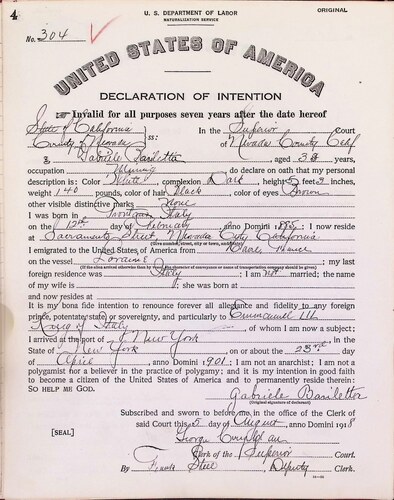 4
U. S. DEPARTMENT OF LABOR
NATURALIZATION SERVICE
ORIGINAL
No. 304
UNITED STATES OF AMERICA
DECLARATION OF INTENTION
Invalid for all purposes seven years after the date hereof
State of California
County of Nevada ss:
In the Superior Court
of Nevada County Calif
I, Gabriele Bariletta, aged 33 years,
occupation Mining, do declare on oath that my personal
description is: Color White, complexion Dark, height 5 feet inches,
weight 140 pounds, color of hair Black, color of eyes Brown
other visible distinctive marks None
I was born in Italy
on the day of February, anno Domini 1885; I now reside
at Sacramento Street, Nevada City California
(Give number, street, city or town, and State.)
I emigrated to the United States of America from Havre France
on the vessel Lorraine; my last
(If the alien arrived otherwise than by vessel, the character of conveyance or name of transportation company should be given.)
foreign residence was Italy; I am not married; the name
of my wife is; she was born at
and now resides at
It is my bona fide intention to renounce forever all allegiance and fidelity to any foreign
prince, potentate, state, or sovereignty, and particularly to Emmanuel III
King of Italy, of whom I am now a subject;
I arrived at the port of New York, in the
State of New York, on or about the 23rd day
of April, anno Domini 1901; I am not an anarchist; I am not a
polygamist nor a believer in the practice of polygamy; and it is my intention in good faith
to become a citizen of the United States of America and to permanently reside therein:
SO HELP ME GOD.
Gabriele Bariletta
(Original signature of declarant.)
Subscribed and sworn to before me in the office of the Clerk of
said Court this 5 day of August, anno Domini 1918
[SEAL]
George
Clerk of the Superior Court.
By Frank Steel Deputy Clerk.